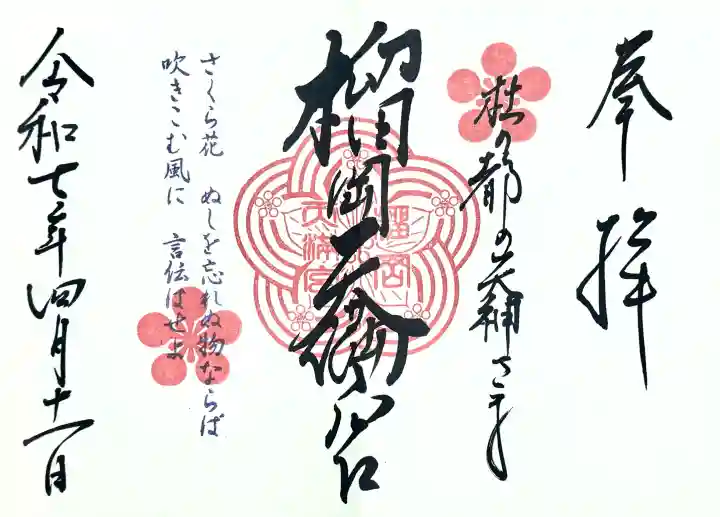 奉拝
杜の都の天神さま
榴岡天満宮
榴岡
天満宮
さくら花 ぬしを忘れぬ物ならば
吹きこむ風に 言伝はせよ
令和七年四月十一日